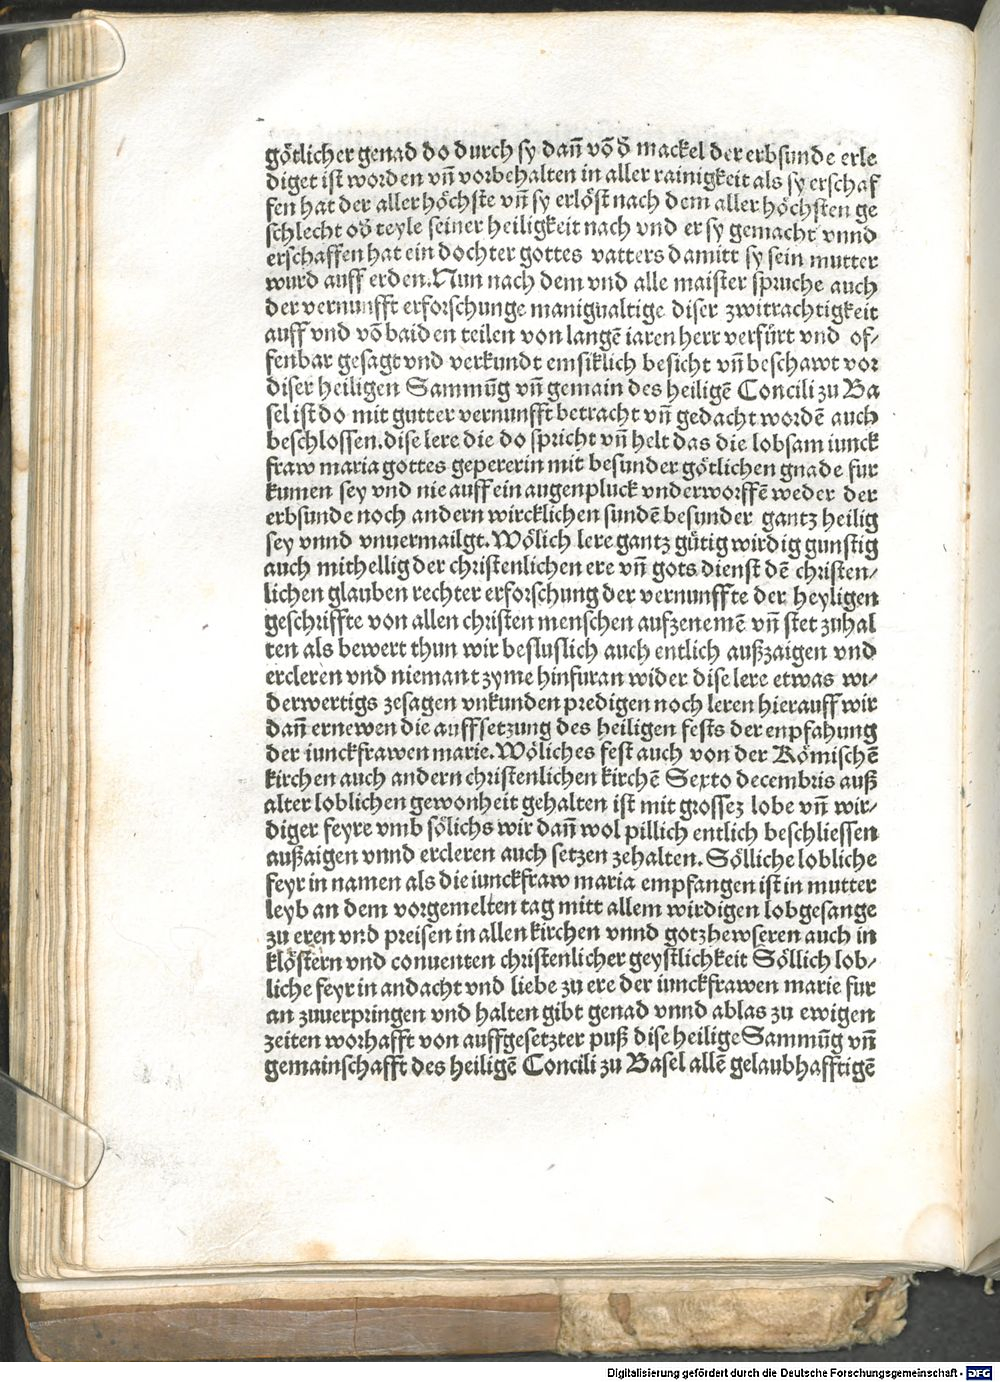 götlicher genad do durch sy dañ võ d̄ mackel der erbsunde erle
diget ist worden vñ vorbehalten in aller rainigkeit als sy erschaf
fen hat der aller höchste vñ sy erlöst nach dem aller höchsten ge
schlecht od̄ teyle seiner heiligkeit nach vnd er sy gemacht vnnd
erschaffen hat ein dochter gottes vatters damitt sy sein mutter
wurd auff erden. Nun nach dem vnd alle maister spruche auch
der vernunfft erforschunge manigualtige diser zwitrachtigkeit
auff vnd võ baiden teilen von langẽ iaren herr verfürt vnd of⸗
fenbar gesagt vnd verkundt emsiklich besicht vñ beschawt vor
diser heiligen Sammũg vñ gemain des heiligẽ Concili zu Ba
sel ist do mit gutter vernunfft betracht vñ gedacht wordẽ auch
beschlossen. dise lere die do spricht vñ helt das die lobsam iunck
fraw maria gottes gepererin mit besunder götlichen gnade fur
kumen sey vnd nie auff ein augenpluck vnderworffẽ weder der
erbsunde noch andern wircklichen sundẽ besunder gantz heilig
sey vnnd vnuermailgt. Wölich lere gantz gütig wirdig gunstig
auch mithellig der christenlichen ere vñ gots dienst dẽ christen⸗
lichen glauben rechter erforschung der vernunffte der heyligen
geschriffte von allen christen menschen aufzenemẽ vñ stet zuhal
ten als bewert thun wir besluslich auch entlich außzaigen vnd
ercleren vnd niemant zyme hinfuran wider dise lere etwas wi⸗
derwertigs zesagen vnkunden predigen noch leren hierauff wir
dañ ernewen die auffsetzung des heiligen fests der enpfahung
der iunckfrawen marie. Wöliches fest auch von der Römischẽ
kirchen auch andern christenlichen kirchẽ Sexto decembris auß
alter loblichen gewonheit gehalten ist mit grossez lobe vñ wir⸗
diger feyre vmb sölichs wir dañ wol pillich entlich beschliessen
außaigen vnnd ercleren auch setzen zehalten. Sölliche lobliche
feyr in namen als die iunckfraw maria empfangen ist in mutter
leyb an dem vorgemelten tag mitt allem wirdigen lobgesange
zu eren vnd preisen in allen kirchen vnnd gotzhewseren auch in
klöstern vnd conuenten christenlicher geystlichkeit Söllich lob⸗
liche feyr in andacht vnd liebe zu ere der iunckfrawen marie fur
an zuuerpringen vnd halten gibt genad vnnd ablas zu ewigen
zeiten worhafft von auffgesetzter puß dise heilige Sammũg vñ
gemainschafft des heiligẽ Concili zu Basel allẽ gelaubhafftigẽ
Digitalisierung gefördert durch die Deutsche Forschungsgemeinschaft - DFG